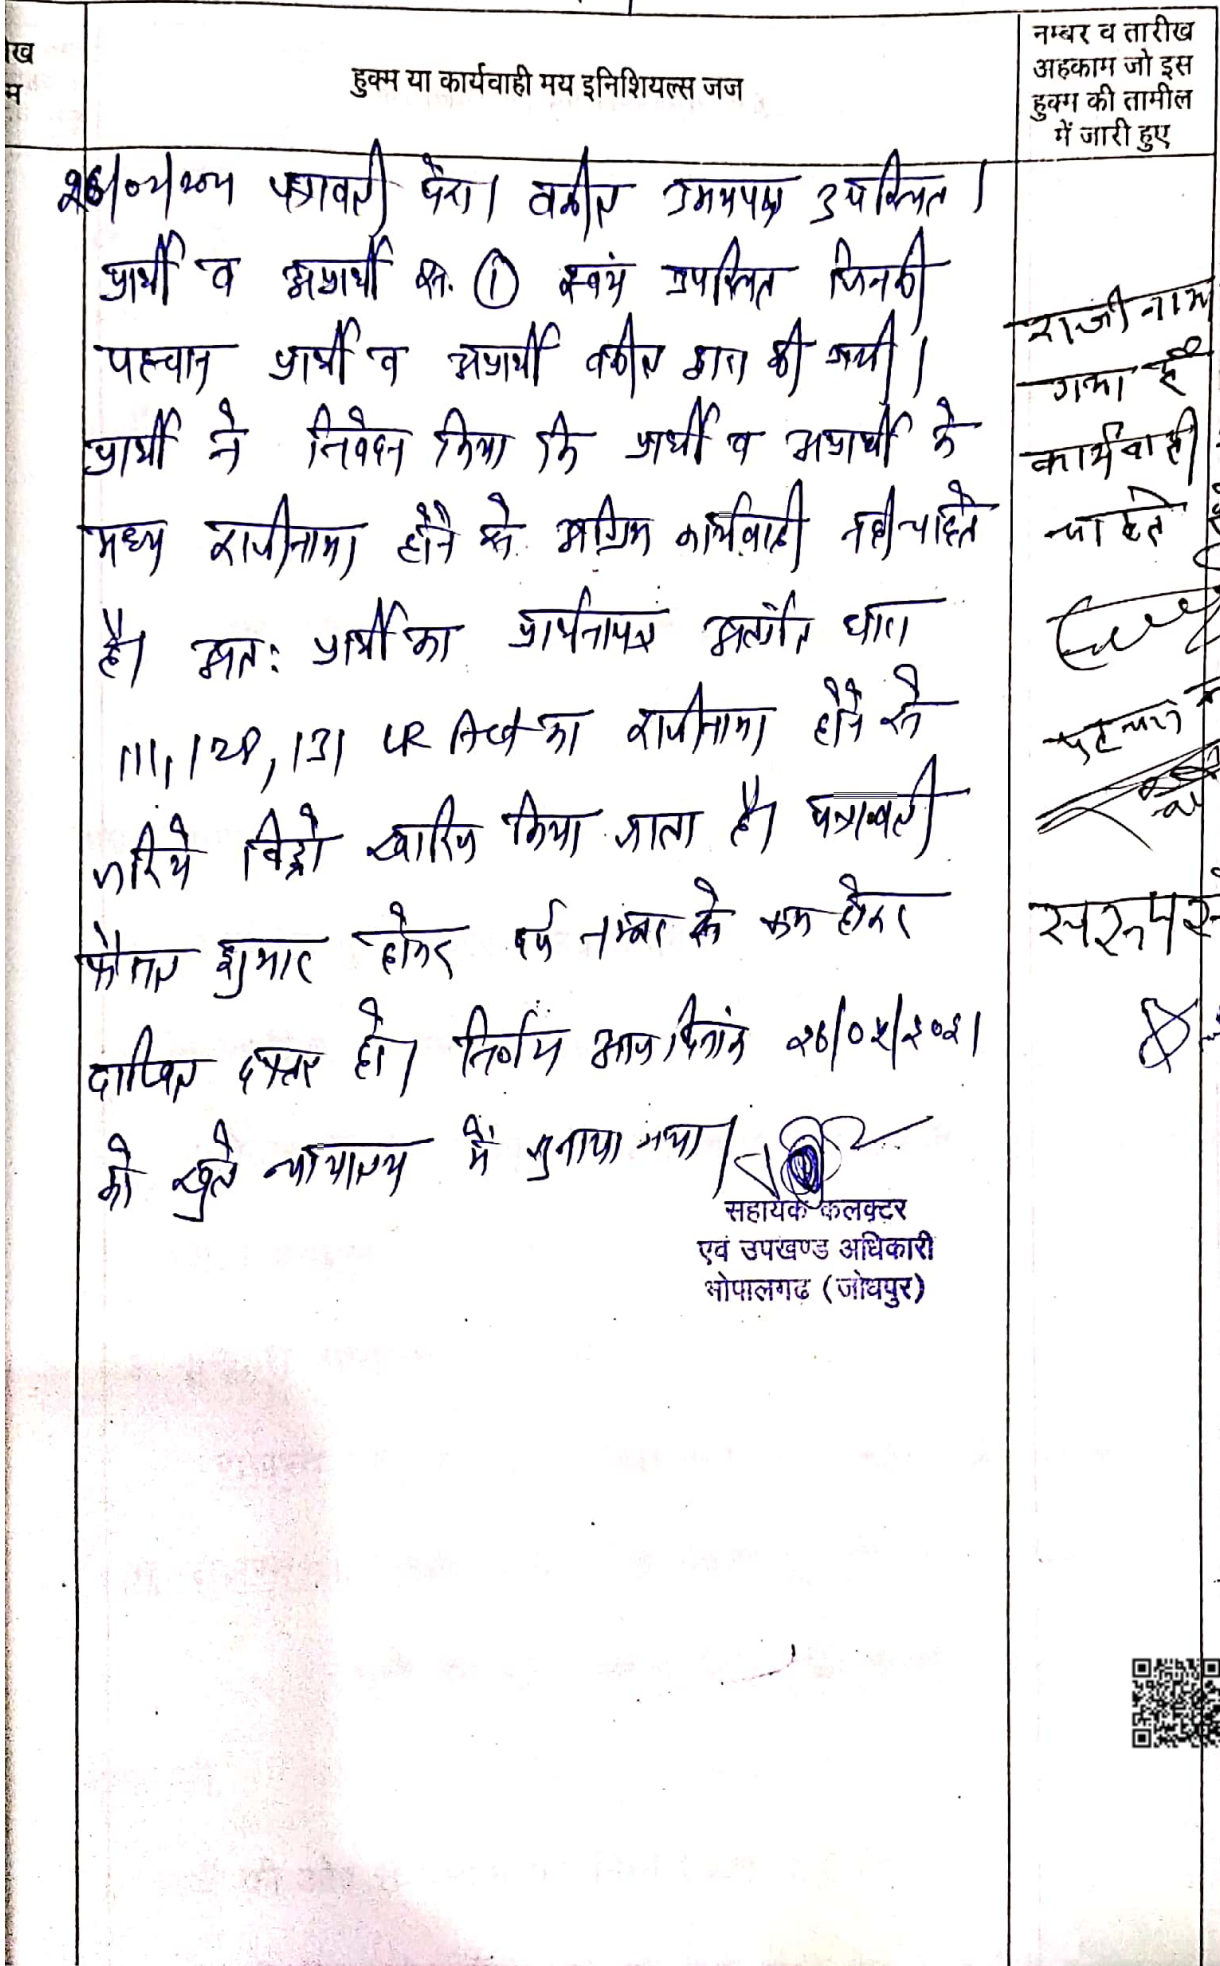 हुक्म या कार्यवाही मय इनिशियल्स जज
नम्बर व तारीख
अहकाम जो इस
हुक्म की तामील
में जारी हुए
पत्रावली पेश। वकील उभयपक्ष उपस्थित।
प्रार्थी व अप्रार्थी सं. ① स्वयं उपस्थित जिनकी
पहचान प्रार्थी व अप्रार्थी वकील द्वारा की गयी।
प्रार्थी ने निवेदन किया कि प्रार्थी व अप्रार्थी के
मध्य राजीनामा होने से अग्रिम कार्यवाही नही चाहते
है। अतः प्रार्थी का प्रार्थनापत्र अन्तर्गत धारा
111, 128, 131 LR Act का राजीनामा होने से
जरिये विड्रो खारिज किया जाता है। पत्रावली
फैसल शुमार होकर दर्ज नम्बर से कम होकर
दाखिल दफ्तर हो। निर्णय आज दिनांक
को खुले न्यायालय में सुनाया गया।
सहायक कलक्टर
एवं उपखण्ड अधिकारी
भोपालगढ (जोधपुर)
राजीनामा
गया है
कार्यवाही
चाहते